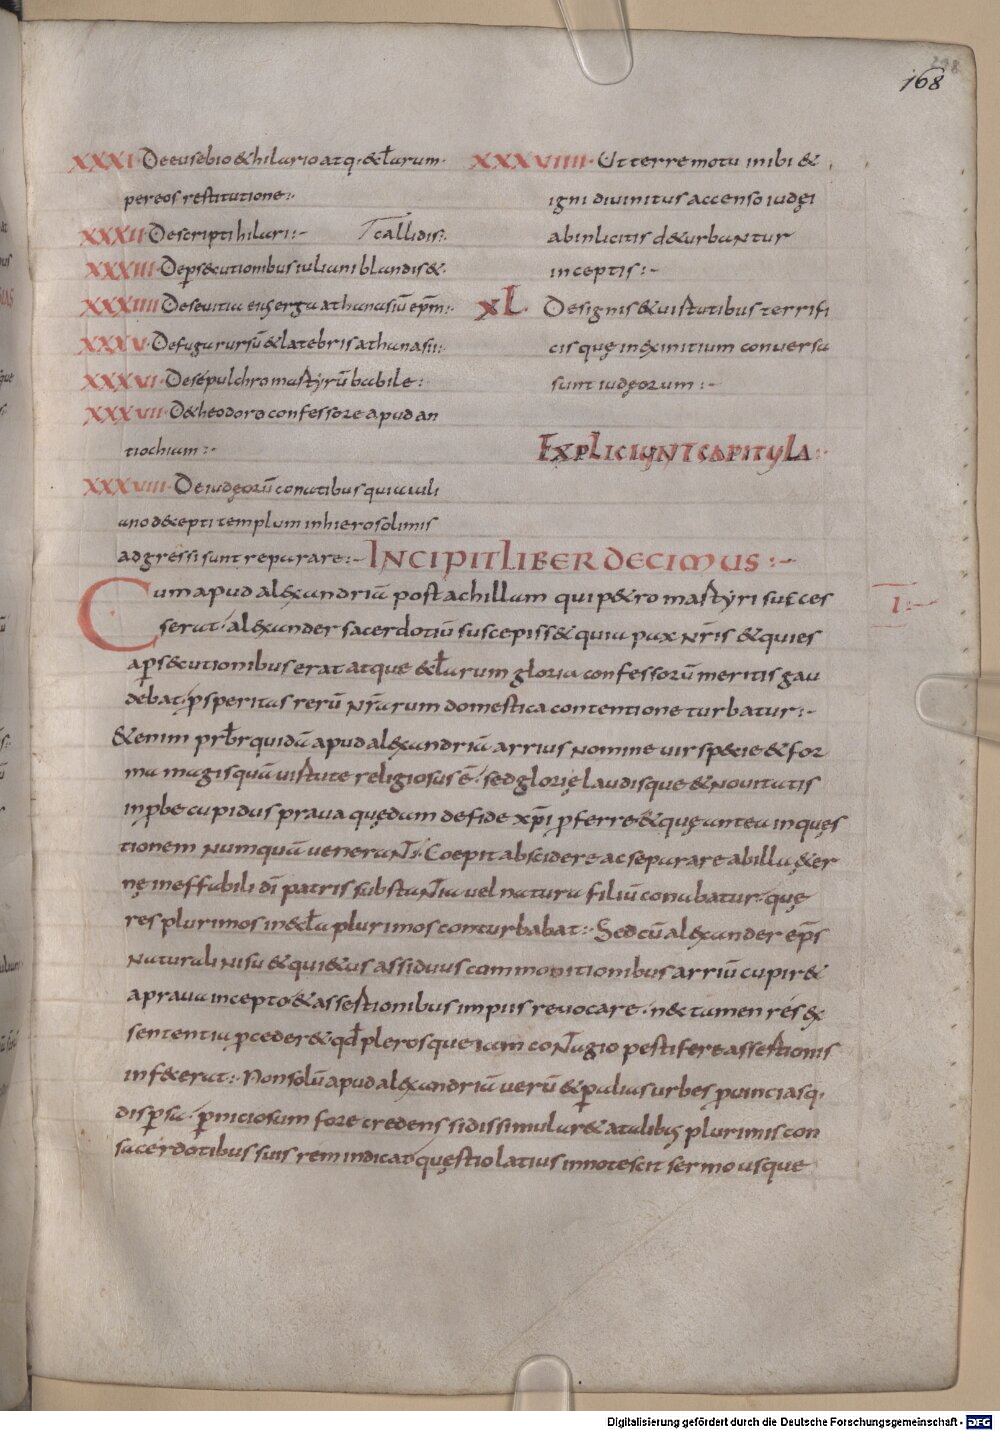 168
XXXI De eusebio & hilario atq· & l̄arum·
per eos restitutione:·
XXXII De scripti hilari:~ Tcallidis:·
XXXIII De ꝑs&cutionibus iuliani blandis &·
XXXIIII De seuitia eiꝰ erga athanasiū ep̄m:·
XXXV· De fuga rursū & latebris athanasii:·
XXXVI· De sepulchro martyrū babile:
XXXVII· D& heodoro confessore apud an
tiochiam:·
XXXVIII· De iudęorū conatibus qui a iuli
ano dec&epti templum in hierosolimis
adgressi sunt reparare:~
XXXVIIII· Ut terre motu inibi &
igni diuinitus accenso iudęi
ab inlicitis d&urbantur
inceptis:~
XL· De signis & uirtutibus terrifi
cis quę in exinitium conuersa
sunt iudęorum:~
EXPLICIUNT CAPITULA:·
INCIPIT LIBER DECIMUS:~
I:~
Cum apud alexandriā post achillam qui p&ro martyri succes
serat· alexander sacerdotiū suscepiss& quia pax nr̄is & quies
a ꝑs&cutionibus erat atque & l̄arum gloria confessorū meritis gau
debat· ꝓsperitas rerū nr̄arum domestica contentione turbatur:~
&enim pr̄br quidā apud alexandriā arrius nomine uir sp&cie & for
ma magis quā uirtute religiosus ē· sed glorię laudisque & nouitatis
inꝓbe cupidus praua quędam de fide xp̄i ꝓferre & quę antea in quęs
tionem numquā uenerant· Coepit abscidere ac separare ab illa &er
nę ineffabili dī patris substantia uel natura filiū conabatur· quę
res plurimos in &cl̄a plurimos conturbabat:· Sed cū alexander ep̄s
naturali nisu & qui&us assiduus commonitionibus arriū cupir&
a praua incepto & assertionibus impiis reuocare· nec tamen res ex
sententia ꝓceder& qd̄ plerosque iam contagio pestifere assertionis
infecerat:· Non solū apud alexandriā uerū & ꝑ alias urbes ꝓuinciasq·
disꝑsa· ꝑniciosum fore credens si dissimular& a talibꝰ plurimis con
sacerdotibus suis rem indicat· quęstio latius innotescit sermo usque
Digitalisierung gefördert durch die Deutsche Forschungsgemeinschaft - DFG